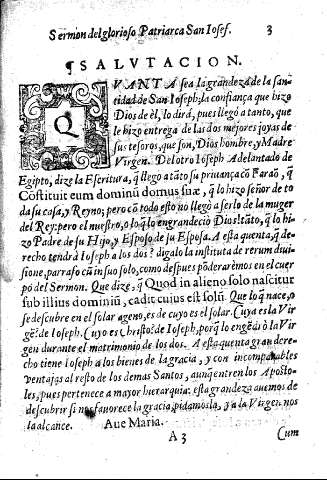 Sermon del glorioso Patriarca San Iosef. 3
¶SALVTACION.
QVANTA sea la grandeza de la san-
tidad de San Ioseph; la confiança que hizo
Dios de èl, lo dirà, pues llegó a tanto, que
le hizo entrega de las dos mejores joyas de
sus tesoros, que son, Dios hombre, y Madre
Virgen. Del otro Ioseph Adelantado de
Egipto, dize la Escritura, q̃ llegó a tãto su priuança cõ Faraõ, q̃
Cõstituit eum dominũ domus suæ, q̃ lo hizo señor de to
da su casa, y Reyno; pero cõ todo esto no llegó a serlo de la muger
del Rey: pero el nuestro, o lo q̃ lo engrandeciò Dios! tãto, q̃ lo hi-
zo Padre de su Hijo, y Esposo de su Esposa. A esta quenta, q̃ de-
recho tendrà Ioseph a los dos? digalo la instituta de rerum diui-
sione, parrafo cũ in suo solo, como despues põderarèmos en el cuer
po del Sermon. Que dize, q̃ Quod in alieno solo nascitur
sub illius dominiũ, cadit cuius est solũ. Que lo q̃ nace, o
se descubre en el solar ageno, es de cuyo es el solar. Cuya es la Vir
gẽ? de Ioseph. Cuyo es Christo? de Ioseph, porq̃ lo engẽdrò la Vir
gen durante el matrimonio de los dos. A esta quenta gran dere-
cho tiene Ioseph a los bienes de la gracia, y con incomparables
ventajas al resto de los demas Santos, aunq̃ entren los Aposto-
les, pues pertenece a mayor hierarquia: esta grandeza auemos de
descubrir si nos fauorece la gracia, pidamosla, q̃ la Virgen nos
la alcance. Aue Maria.
A 3 Cum